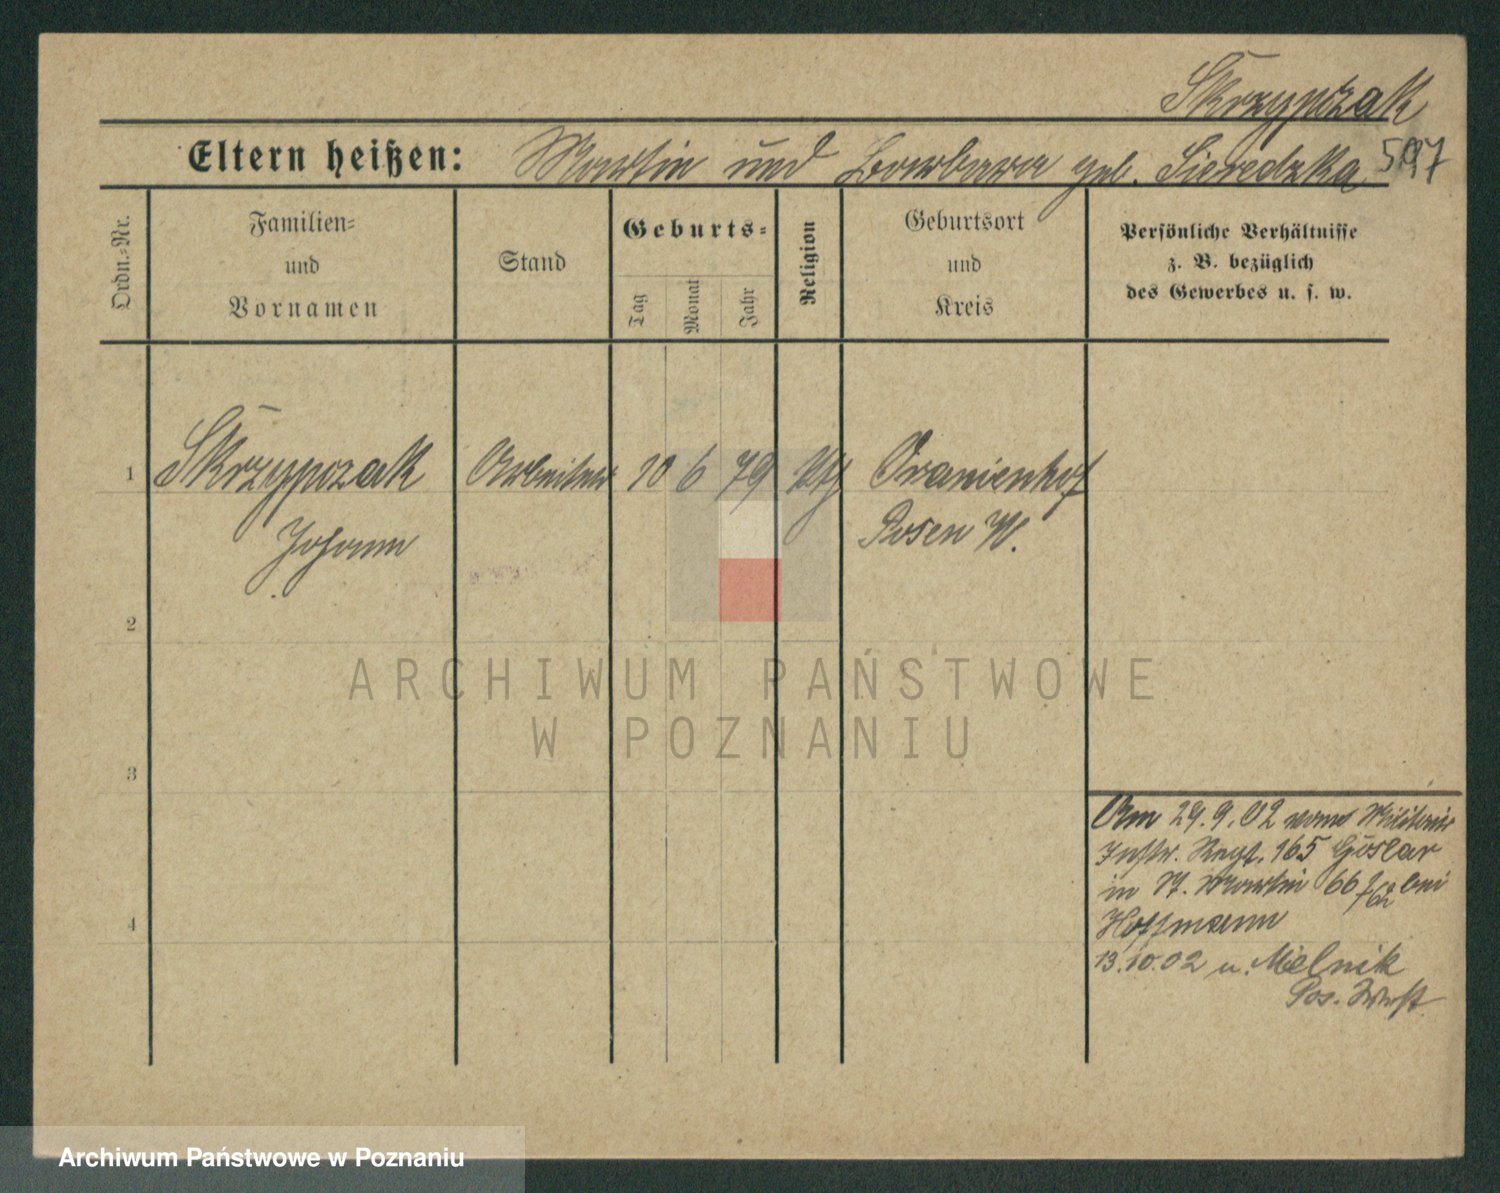 Skrzypczak
Eltern heißen: Martin und Barbara geb. Sieredzka 597
Ordn.-Nr.
Familien-
und
Vornamen
Stand
Geburts-
Tag
Monat
Jahr
Religion
Geburtsort
und
Kreis
Persönliche Verhältnisse
z. B. bezüglich
des Gewerbes u. s. w.
1 Skrzypczak Arbeiter 10 6 79 kth Oranienhof
Johann Posen W.
2
3
4
Am 29.9.02 vom Militair
Inftr. Regt. 165 Goslar
in St. Martin 66 bei
Hoffmann
13.10.02 u. Mielnik
Pos.
ARCHIWUM PAŃSTWOWE
W POZNANIU
Archiwum Państwowe w Poznaniu